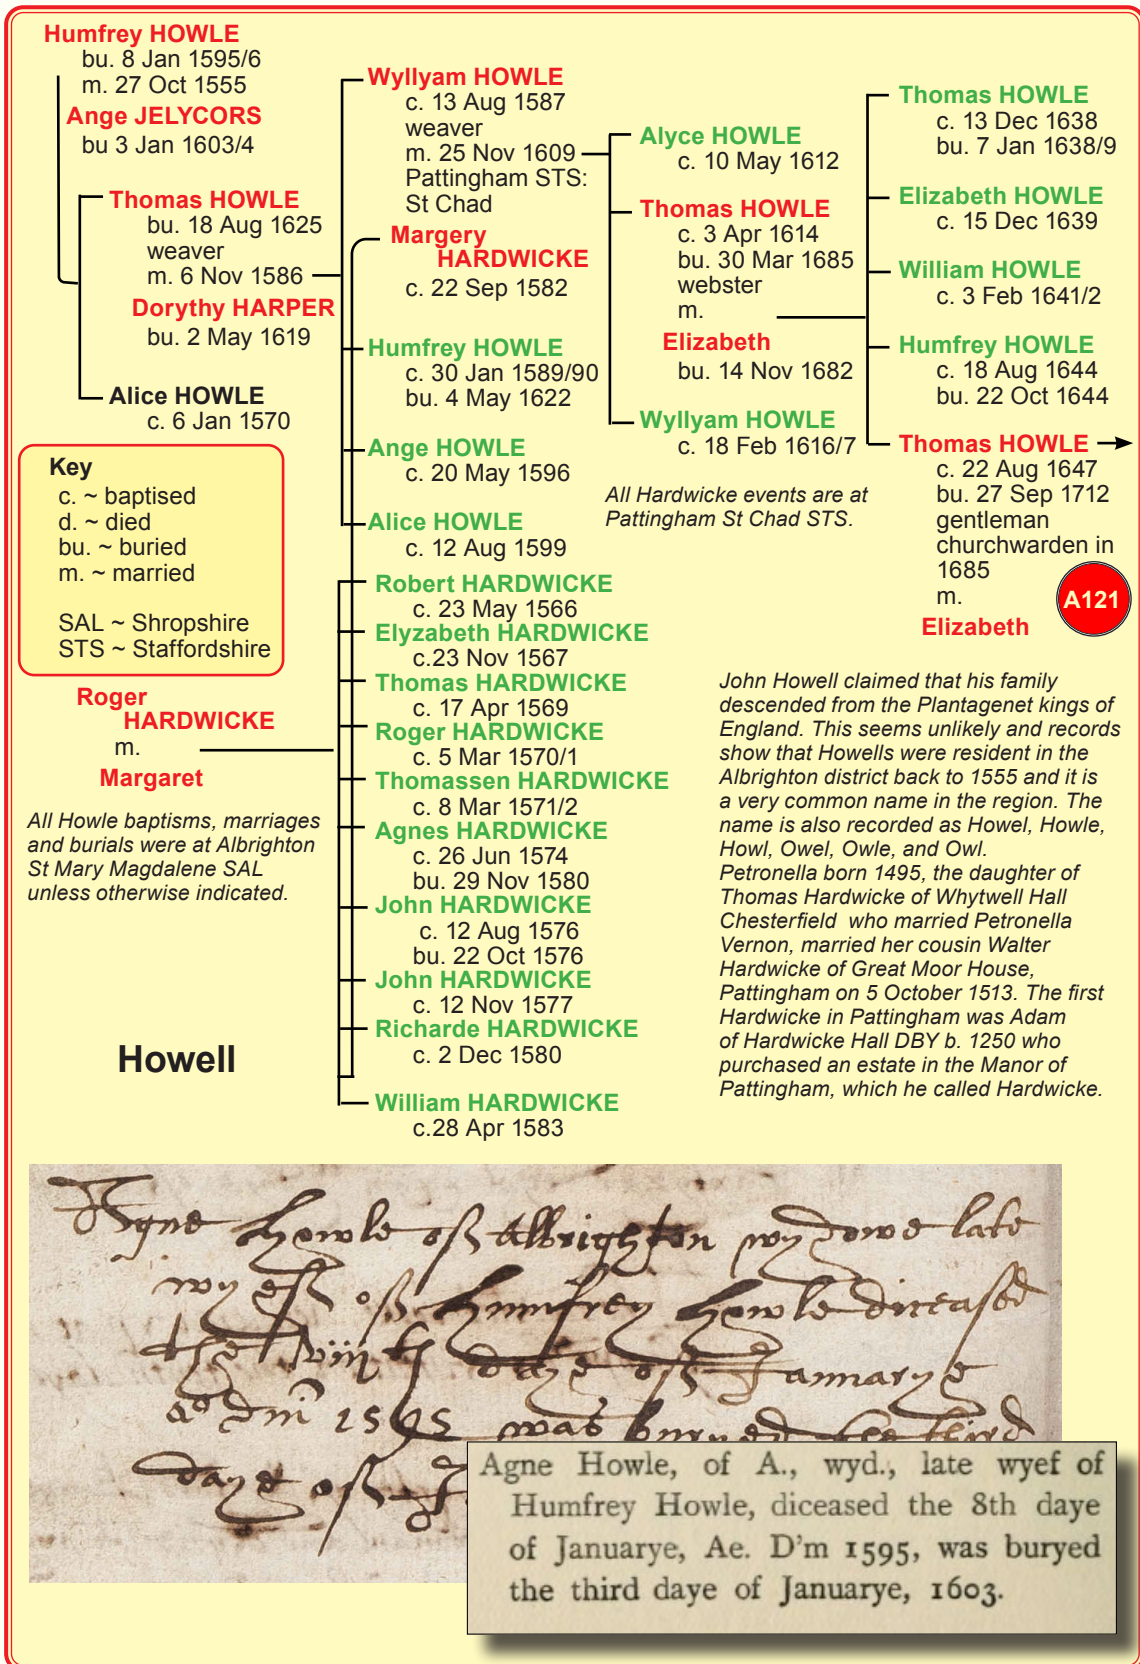 Humfrey HOWLE
bu. 8 Jan 1595/6
m. 27 Oct 1555
Ange JELYCORS
bu 3 Jan 1603/4
Thomas HOWLE
bu. 18 Aug 1625
weaver
m. 6 Nov 1586
Dorythy HARPER
bu. 2 May 1619
Alice HOWLE
c. 6 Jan 1570
Key
c. ~ baptised
d. ~ died
bu. ~ buried
m. ~ married
SAL ~ Shropshire
STS ~ Staffordshire
Roger
HARDWICKE
m.
Margaret
All Howle baptisms, marriages
and burials were at Albrighton
St Mary Magdalene SAL
unless otherwise indicated.
Howell
Wyllyam HOWLE
c. 13 Aug 1587
weaver
m. 25 Nov 1609
Pattingham STS:
St Chad
Margery
HARDWICKE
c. 22 Sep 1582
Humfrey HOWLE
c. 30 Jan 1589/90
bu. 4 May 1622
Ange HOWLE
c. 20 May 1596
Alice HOWLE
c. 12 Aug 1599
Robert HARDWICKE
c. 23 May 1566
Elyzabeth HARDWICKE
c.23 Nov 1567
Thomas HARDWICKE
c. 17 Apr 1569
Roger HARDWICKE
c. 5 Mar 1570/1
Thomassen HARDWICKE
c. 8 Mar 1571/2
Agnes HARDWICKE
c. 26 Jun 1574
bu. 29 Nov 1580
John HARDWICKE
c. 12 Aug 1576
bu. 22 Oct 1576
John HARDWICKE
c. 12 Nov 1577
Richarde HARDWICKE
c. 2 Dec 1580
William HARDWICKE
c.28 Apr 1583
Alyce HOWLE
c. 10 May 1612
Thomas HOWLE
c. 3 Apr 1614
bu. 30 Mar 1685
webster
m.
Elizabeth
bu. 14 Nov 1682
Wyllyam HOWLE
c. 18 Feb 1616/7
All Hardwicke events are at
Pattingham St Chad STS.
Thomas HOWLE
c. 13 Dec 1638
bu. 7 Jan 1638/9
Elizabeth HOWLE
c. 15 Dec 1639
William HOWLE
c. 3 Feb 1641/2
Humfrey HOWLE
c. 18 Aug 1644
bu. 22 Oct 1644
Thomas HOWLE
c. 22 Aug 1647
bu. 27 Sep 1712
gentleman
churchwarden in
1685
m.
Elizabeth
A121
John Howell claimed that his family
descended from the Plantagenet kings of
England. This seems unlikely and records
show that Howells were resident in the
Albrighton district back to 1555 and it is
a very common name in the region. The
name is also recorded as Howel, Howle,
Howl, Owel, Owle, and Owl.
Petronella born 1495, the daughter of
Thomas Hardwicke of Whytwell Hall
Chesterfield who married Petronella
Vernon, married her cousin Walter
Hardwicke of Great Moor House,
Pattingham on 5 October 1513. The first
Hardwicke in Pattingham was Adam
of Hardwicke Hall DBY b. 1250 who
purchased an estate in the Manor of
Pattingham, which he called Hardwicke.
Agne Howle off Albrighton wydowe late
wyeff off Humfrey Howle diceased
the viijth daye off Januarye
Ao dni 1595 was buryed the third
daye off
Agne Howle, of A., wyd., late wyef of
Humfrey Howle, diceased the 8th daye
of Januarye, Ae. D'm 1595, was buryed
the third daye of Januarye, 1603.